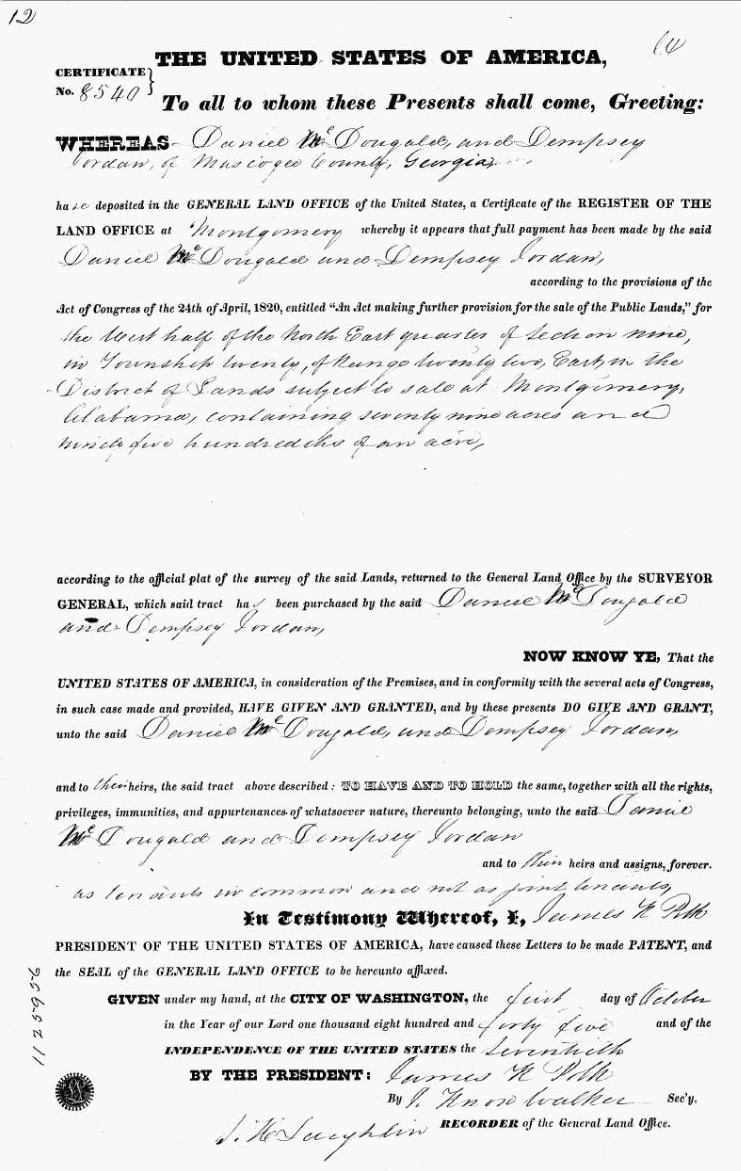 12
THE UNITED STATES OF AMERICA,
CERTIFICATE
No. 8540
To all to whom these Presents shall come, Greeting:
WHEREAS Daniel McDougald, and Dempsey
Jordan, of Muscogee County, Georgia,
have deposited in the GENERAL LAND OFFICE of the United States, a Certificate of the REGISTER OF THE
LAND OFFICE at Montgomery whereby it appears that full payment has been made by the said
Daniel McDougald and Dempsey Jordan,
according to the provisions of the
Act of Congress of the 24th of April, 1820, entitled "An Act making further provision for the sale of the Public Lands," for
the West half of the North East quarter of Section nine,
in Township twenty, of Range twenty two, East, in the
District of Lands subject to sale at Montgomery,
Alabama, containing seventy nine acres and
ninety five hundredths of an acre,
according to the official plat of the survey of the said Lands, returned to the General Land Office by the SURVEYOR
GENERAL, which said tract has been purchased by the said Daniel McDougald
and Dempsey Jordan,
NOW KNOW YE, That the
UNITED STATES OF AMERICA, in consideration of the Premises, and in conformity with the several acts of Congress,
in such case made and provided, HAVE GIVEN AND GRANTED, and by these presents DO GIVE AND GRANT,
unto the said Daniel McDougald, and Dempsey Jordan,
and to their heirs, the said tract above described: TO HAVE AND TO HOLD the same, together with all the rights,
privileges, immunities, and appurtenances of whatsoever nature, thereunto belonging, unto the said Daniel
McDougald and Dempsey Jordan
and to their heirs and assigns, forever.
as tenants in common and not as joint tenants,
In Testimony Whereof, I, James K Polk
PRESIDENT OF THE UNITED STATES OF AMERICA, have caused these Letters to be made PATENT, and
the SEAL of the GENERAL LAND OFFICE to be hereunto affixed.
GIVEN under my hand, at the CITY OF WASHINGTON, the first day of October
in the Year of our Lord one thousand eight hundred and forty five and of the
INDEPENDENCE OF THE UNITED STATES the Seventieth
BY THE PRESIDENT: James K Polk
By J. Knox Walker Sec'y.
S. H. Laughlin RECORDER of the General Land Office.